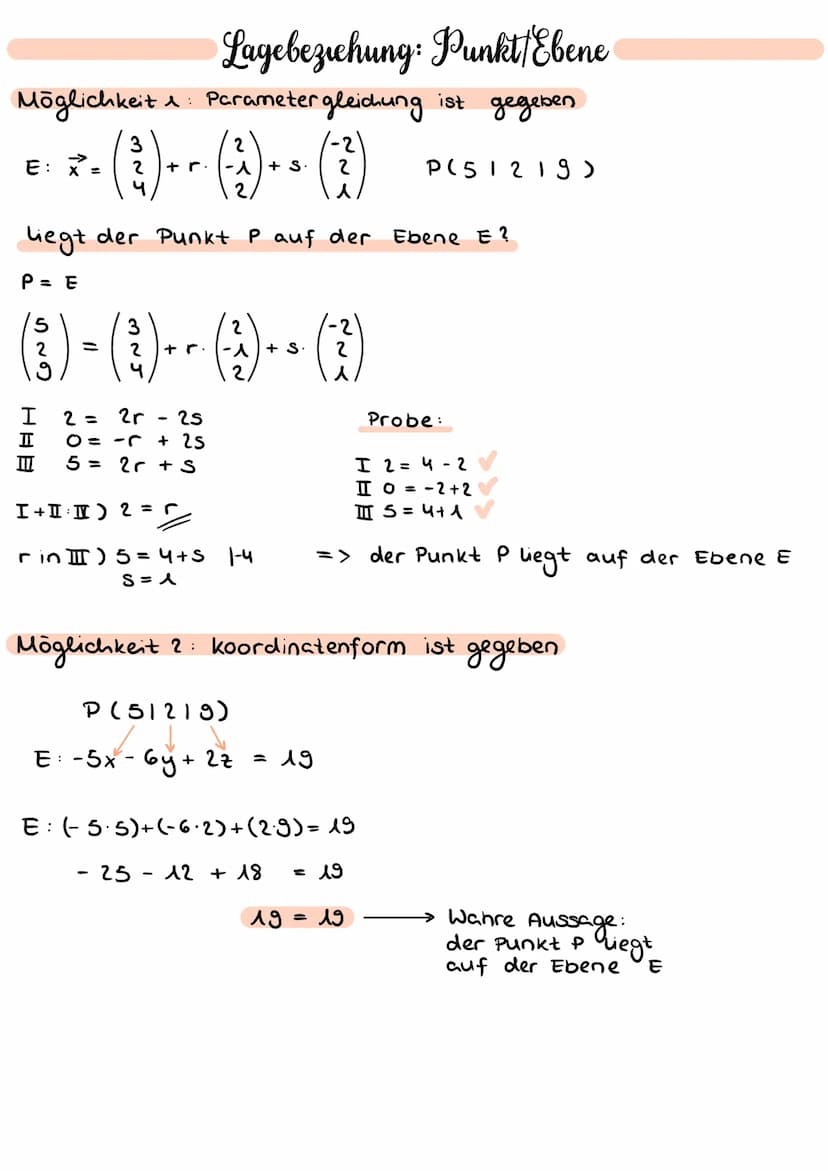 Lagebeziehung: Punkt/Ebene
Möglichkeit 1: Parametergleichung ist gegeben
E: x⃗ = (3 2 4) + r · (2 -1 2) + s · (-2 2 1) P(5|2|9)
Liegt der Punkt P auf der Ebene E?
P = E
(5 2 9) = (3 2 4) + r · (2 -1 2) + s · (-2 2 1)
I 2 = 2r - 2s
II 0 = -r + 2s
III 5 = 2r + s
I+II: IV) 2 = r
r in III) 5 = 4+s |-4
s = 1
Probe:
I 2 = 4 - 2 ✓
II 0 = -2+2 ✓
III 5 = 4+1 ✓
=> der Punkt P liegt auf der Ebene E
Möglichkeit 2: Koordinatenform ist gegeben
P(5|2|9)
E: -5x - 6y + 2z = 19
E: (-5·5)+(-6·2)+(2·9) = 19
- 25 - 12 + 18 = 19
19 = 19 → Wahre Aussage:
der Punkt P liegt
auf der Ebene E